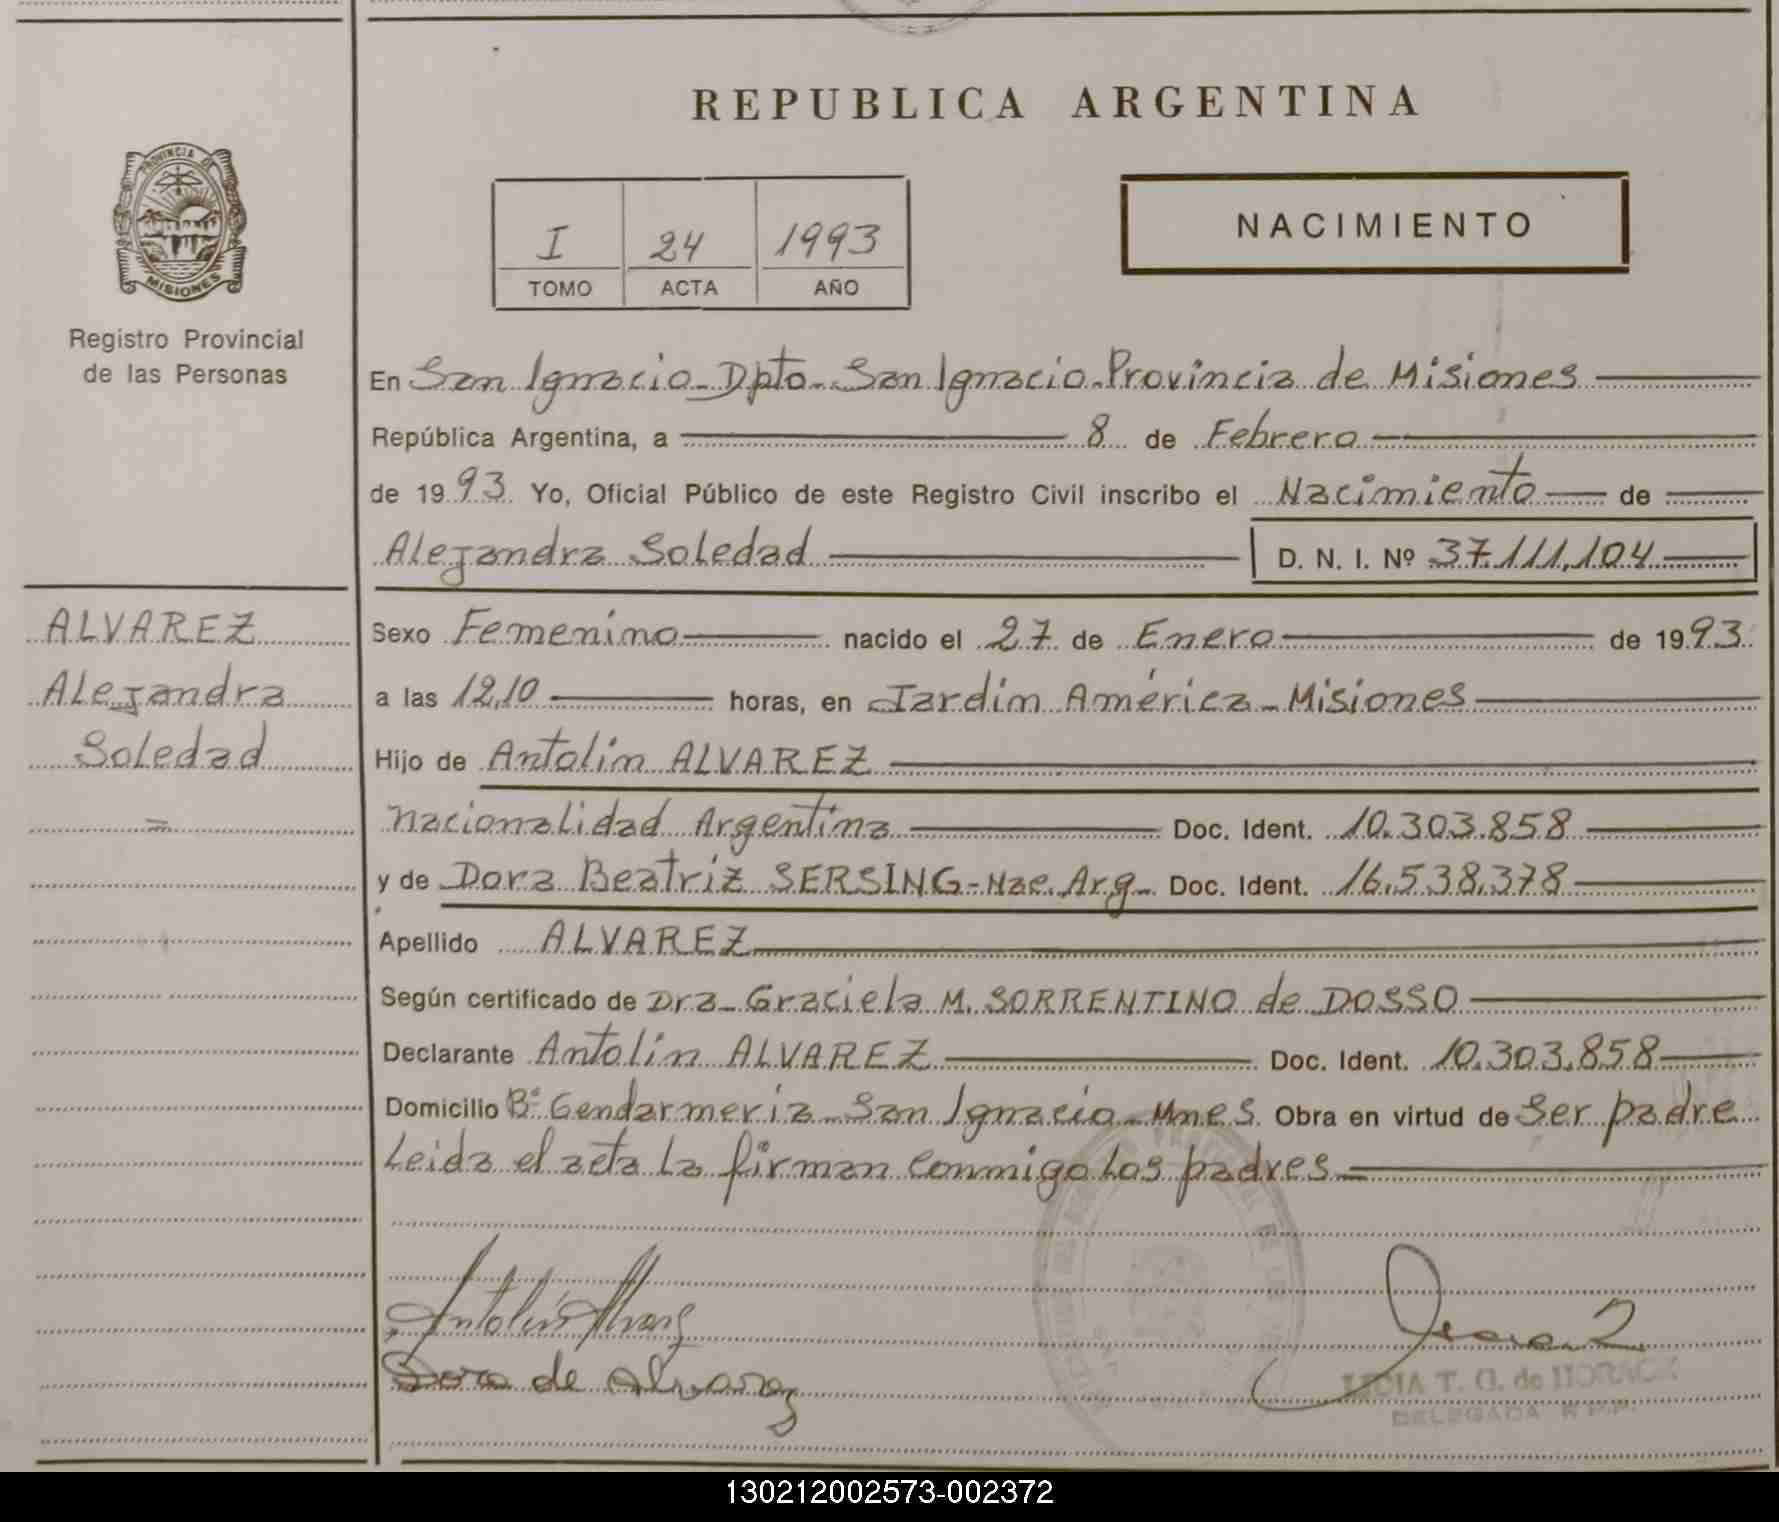 REPUBLICA ARGENTINA
PROVINCIA DE
MISIONES
Registro Provincial
de las Personas
I 24 1993
TOMO ACTA AÑO
NACIMIENTO
En San Ignacio - Dpto - San Ignacio - Provincia de Misiones
República Argentina, a 8 de Febrero
de 1993. Yo, Oficial Público de este Registro Civil inscribo el Nacimiento de
Alejandra Soledad D. N. I. Nº 37.111.104
ALVAREZ
Alejandra
Soledad
=
Sexo Femenino nacido el 27 de Enero de 1993.
a las 12,10 horas, en Jardín América - Misiones
Hijo de Antolín ALVAREZ
Nacionalidad Argentina Doc. Ident. 10.303.858
y de Dora Beatriz SERSING - Nac. Arg - Doc. Ident. 16.538.378
Apellido ALVAREZ
Según certificado de Dra - Graciela M. SORRENTINO de DOSSO
Declarante Antolín ALVAREZ Doc. Ident. 10.303.858
Domicilio Bº Gendarmeria - San Ignacio - Mnes. Obra en virtud de Ser padre
Leida el acta la firman conmigo los padres
Antolín Alvarez
Dora de Alvarez
T. G. de HORACK
DELEGADA R.P.P.
130212002573-002372